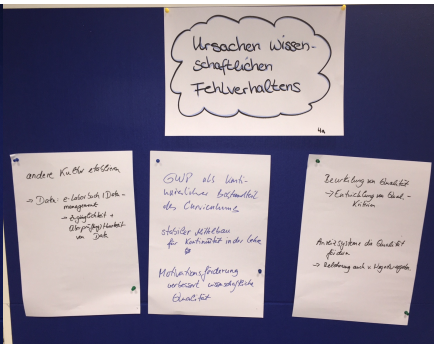 Ursachen wissen-
schaftlichen
Fehlverhaltens
4a
andere Kultur etablieren
→ Data: e-Laborbuch / Data-
management
→ Zugänglichkeit +
Überprüfbarkeit
von Data
GWP als konti-
nuierlicher Bestandteil
des Curriculums
stabiler Mittelbau
für Kontinuität in der Lehre
Motivationsförderung
verbessert wissenschaftliche
Qualität
Beurteilung von Qualität
→ Entwicklung von Qual.-
Kriterien
Anreizsysteme die Qualität
fördern
→ Belohnung auch v. Negativergebn.